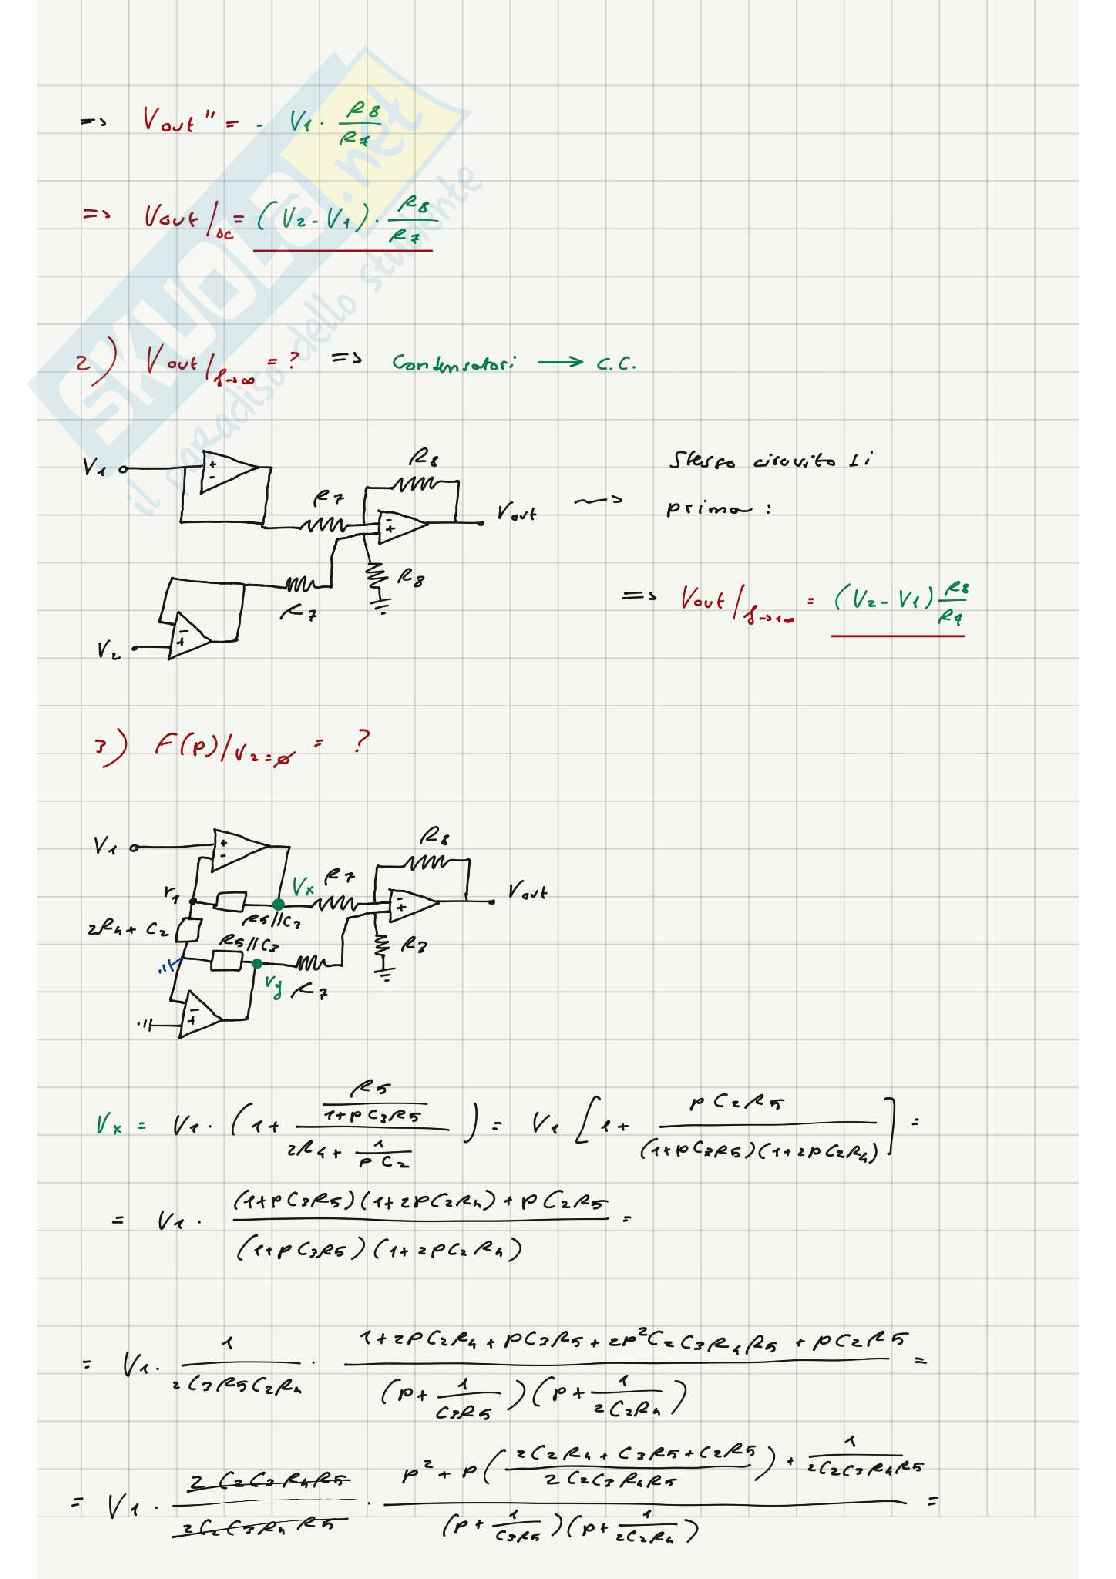 => Vout" = - V1 · R8/R7
=> Vout/DC = (V2 - V1) · R8/R7
SKUOLA.net
il paradiso dello studente
2) Vout/f→∞ = ? => Condensatori → C.C.
V1 + - R7 R8 - + Vout R8 R7 - + V2
Stesso circuito di
prima :
=> Vout/f→∞ = (V2 - V1) R8/R7
3) F(p)/V2=ø = ?
V1 + - r1 Vx R7 R8 - + Vout
2R4 + C2 R5//C3
R5//C3 R8
Vy R7 - +
Vx = V1 · (1 + (R5/(1+pC3R5))/(2R4 + 1/pC2)) = V1 [1 + pC2R5/((1+pC3R5)(1+2pC2R4))] =
= V1 · ((1+pC3R5)(1+2pC2R4) + pC2R5)/((1+pC3R5)(1+2pC2R4)) =
= V1 · 1/(2C3R5C2R4) · (1+2pC2R4 + pC3R5 + 2p²C2C3R4R5 + pC2R5)/((p + 1/C3R5)(p + 1/2C2R4)) =
= V1 · 2C2C3R4R5/2C2C3R4R5 · (p² + p((2C2R4 + C3R5 + C2R5)/2C2C3R4R5) + 1/2C2C3R4R5)/((p + 1/C3R5)(p + 1/2C2R4)) =